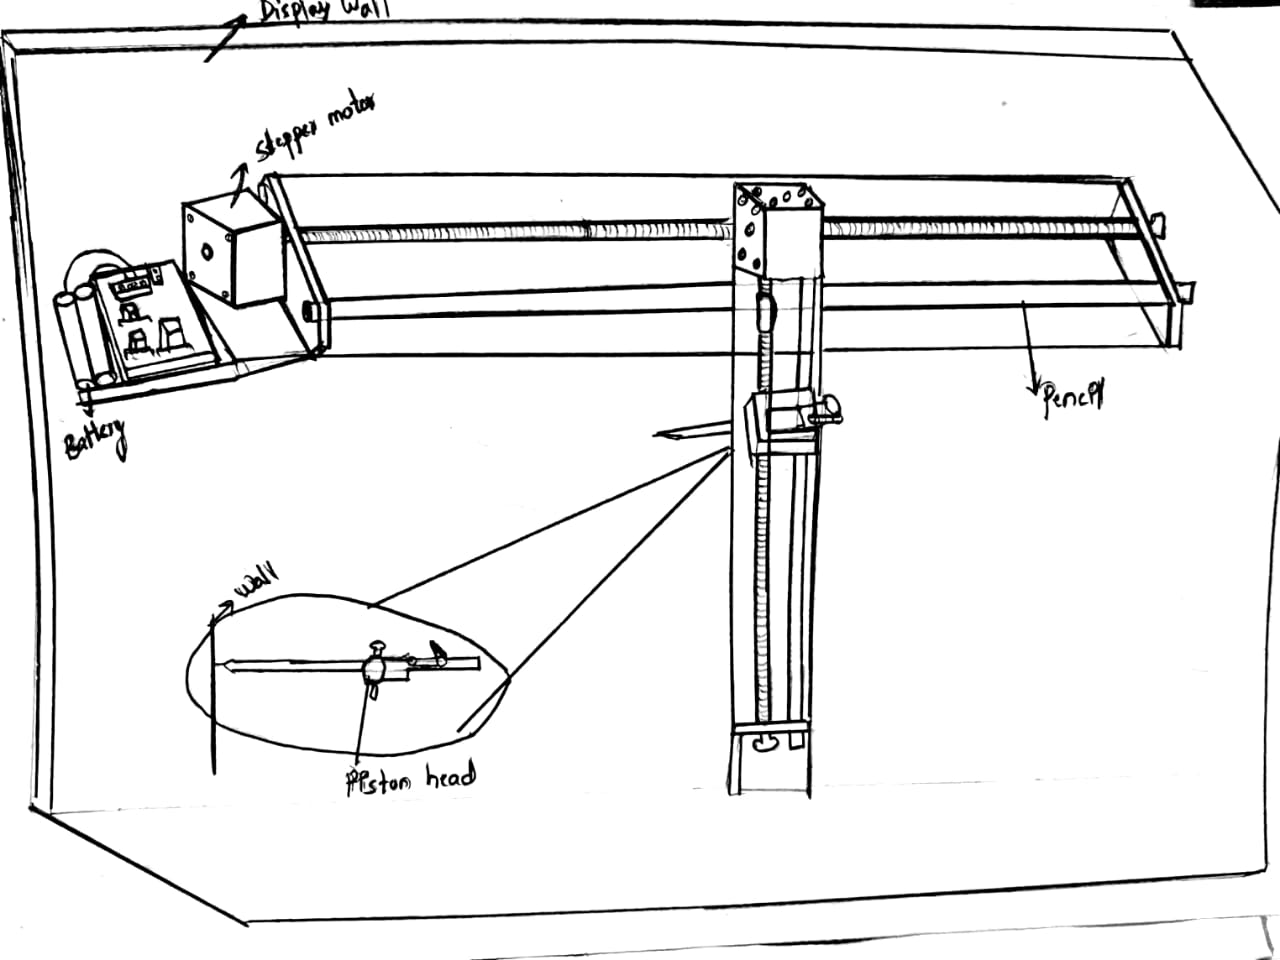 Display Wall
Stepper motor
Battery
Pencil
Wall
Piston head